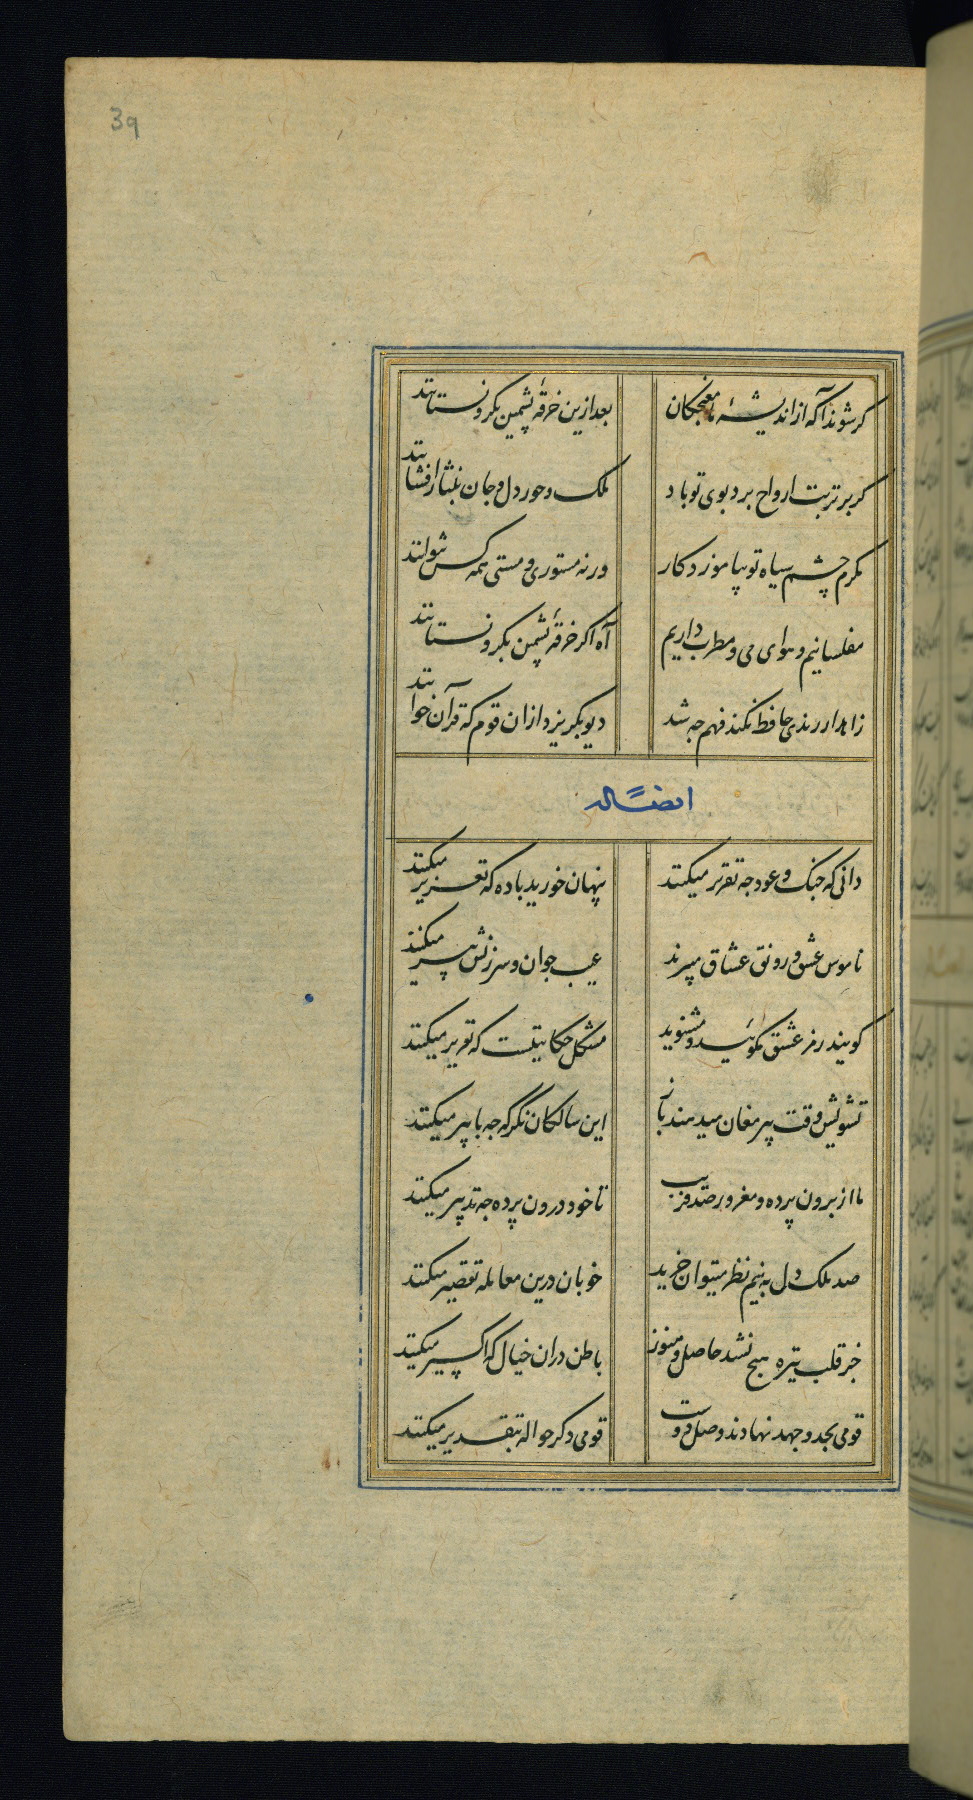 39
کر شوند آکه از اندیشۀ ما مغبچکان
بعد ازین خرقۀ پشمین بکرو نستانند
کر بر تربت ارواح برد بوی تو باد
ملک و حور دل و جان بنثار افشانند
مکرم چشم سیاه تو بیاموزد کار
ورنه مستوری و مستی همه کس نتوانند
مفلسانیم و هوای می و مطرب داریم
آه اکر خرقۀ پشمین بکرو نستانند
زاهد ار رندی حافظ نکند فهم چه شد
دیو بکریزد ازان قوم که قرآن خوانند
ایضاً له
دانی که چنک و عود چه تقریر میکنند
پنهان خورید باده که تعزیر میکنند
ناموس عشق و رونق عشاق میبرند
عیب جوان و سرزنش پیر میکنند
کویند رمز عشق مکوئید و مشنوید
مشکل حکایتیست که تقریر میکنند
تشویش وقت پیر مغان میدهند باز
این سالکان نکر که چه با پیر میکنند
ما از برون پرده و مغرور صد فریب
تا خود درون پرده چه تدبیر میکنند
صد ملک دل به نیم نظر میتوان خرید
خوبان درین معامله تقصیر میکنند
جز قلب تیره هیچ نشد حاصل و هنوز
باطن دران خیال که اکسیر میکنند
قومی بجد و جهد نهادند وصل دوست
قومی دکر حواله بتقدیر میکنند